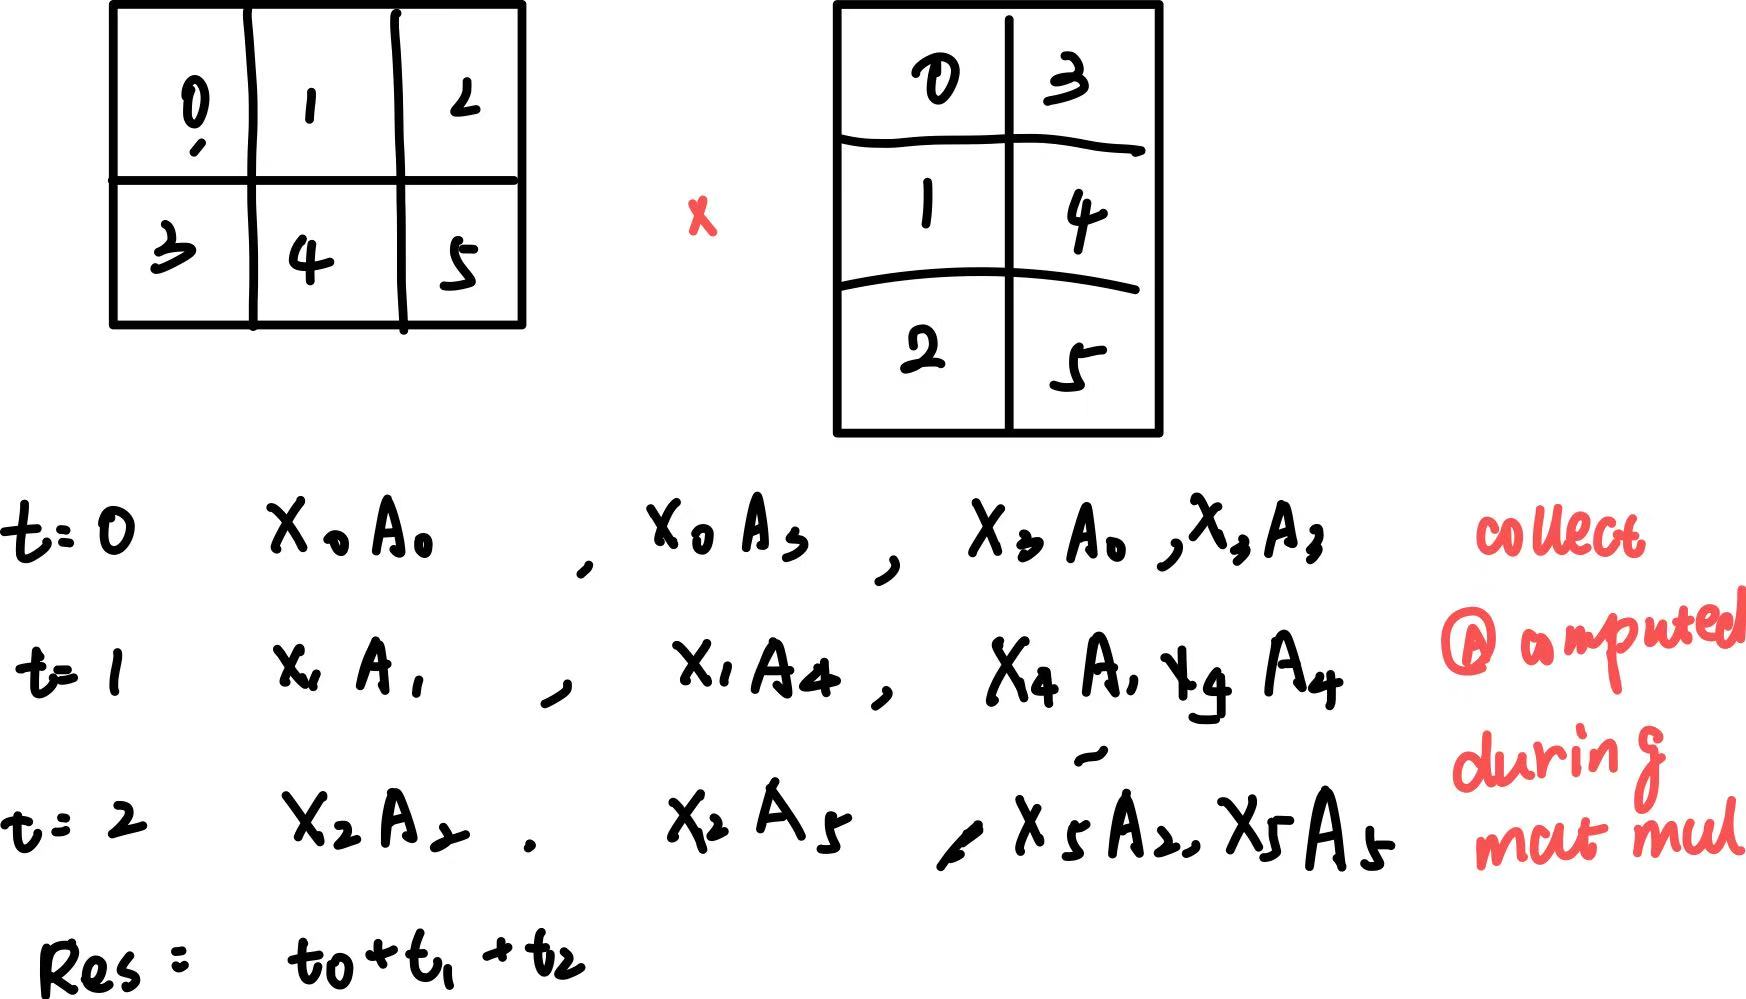 0 1 2
3 4 5
x
0 3
1 4
2 5
t=0 X₀A₀ , X₀A₃ , X₃A₀ , X₃A₃
t=1 X₁A₁ , X₁A₄ , X₄A₁ X₄A₄
t=2 X₂A₂ . X₂A₅ , X₅A₂, X₅A₅
Res = t₀+t₁+t₂
collect
Ⓐ computed
during
mat mul